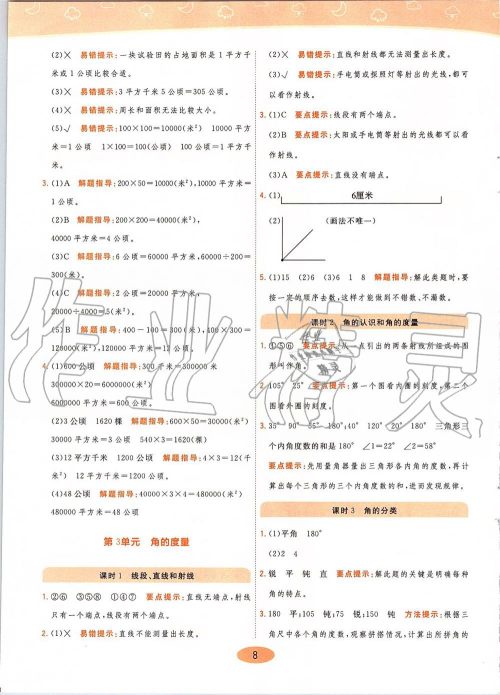 (2)× 易错提示:一块试验田的占地面积是1平方千
米或1公顷比较合适。
(3)× 易错提示:3平方千米5公顷=305公顷。
(4)× 易错提示:周长和面积无法比较大小。
(5)√ 易错提示:100×100=10000(米²) 10000平方
米=1公顷 1×100=100(公顷) 100公顷=1平方千
米。
3.(1)A 解题指导:200×50=10000(米²),10000平方米=
1公顷。
(2)B 解题指导:200×200=40000(米²),
40000平方米=4公顷。
(3)C 解题指导:6公顷=60000平方米,60000÷200=
300(米)。
(4)C 解题指导:2公顷=20000平方米,
20000÷4000=5(米²)。
(5)B 解题指导:400-100=300(米),400×300=
120000(米²),120000平方米=12公顷。
4.(1)600公顷 解题指导:300千米=300000米
300000×20=6000000(米²)
6000000平方米=600公顷。
(2)3公顷 1620棵 解题指导:600×50=30000(米²)
30000平方米=3公顷 540×3=1620(棵)
(3)12平方千米 1200公顷 解题指导:4×3=12(千
米²) 12平方千米=1200公顷。
(4)48公顷 解题指导:40000×3×4=480000(米²)
480000平方米=48公顷
第3单元 角的度量
课时1 线段、直线和射线
1.②⑥ ③⑤⑧ ①④⑦ 要点提示:直线无端点,射线
只有一个端点,线段有两个端点。
2.(1)× 易错提示:直线不能测量出长度。
(2)× 易错提示:直线和射线都无法测量出长度。
(3)√ 易错提示:手电筒或探照灯等射出的光线,都可
以看作射线。
3.(1)C 要点提示:线段有两个端点。
(2)B 要点提示:太阳或手电筒等射出的光线都可以看
作射线。
(3)A 要点提示:直线没有端点。
4.(1) 6厘米
(2) (画法不唯一)
5.(1)15 (2)6 (3)6 1 8 解题指导:解此类题时,要
按一定的顺序去数,这样才能做到不错数、不漏数。
课时2 角的认识和角的度量
1.①⑤⑥ 要点提示:从一点引出的两条射线所组成的图
形叫作角。
2.105° 25° 要点提示:第一个图看内圈的刻度,第二个
图看外圈的刻度。
3.35° 90° 55° 180° 40° 120° 20° 180° 三角形三
个内角度数的和是180° ∠1=22° ∠2=58°
要点提示:先用量角器量出三角形各内角的度数,再计
算出每个三角形的三个内角度数的和,进而发现规律。
课时3 角的分类
1.(1)平角 180°
(2)2 4
2.锐 平 钝 直 要点提示:解此题的关键是明确每种
角的特点。
3.180 平;105 钝;75 锐;150 钝 方法提示:根据三
角尺中各个角的度数,观察拼搭情况,计算出所拼角的
8
作业精灵